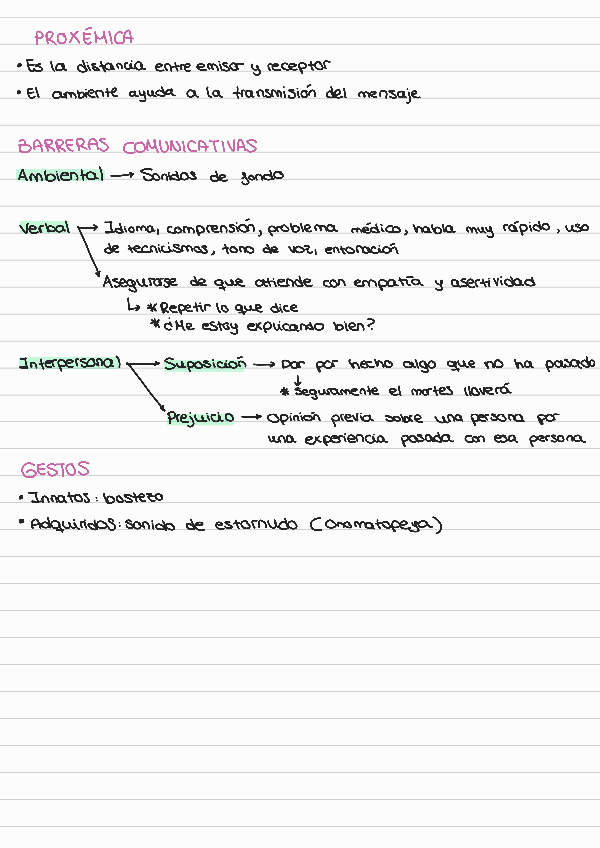 PROXÉMICA
• Es la distancia entre emisor y receptor
• El ambiente ayuda a la transmisión del mensaje
BARRERAS COMUNICATIVAS
Ambiental → Sonidos de fondo
Verbal → Idioma, comprensión, problema médico, habla muy rápido, uso
de tecnicismos, tono de voz, entonación
Asegurarse de que atiende con empatía y asertividad
↳ * Repetir lo que dice
* ¿Me estoy explicando bien?
Interpersonal → Suposición → Dar por hecho algo que no ha pasado
* Seguramente el martes lloverá
Prejuicio → Opinión previa sobre una persona por
una experiencia pasada con esa persona
GESTOS
• Innatos: bostezo
• Adquiridos: sonido de estornudo (Onomatopeya)